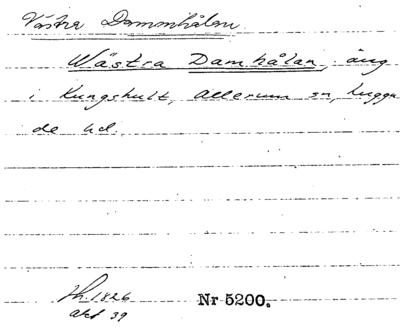 Västra Dammhålan
Wästra Damhålan, äng
i Kungshult, Allerum sn, Luggu
de hd.
Lh. 1826
akt 39
Nr 5200.